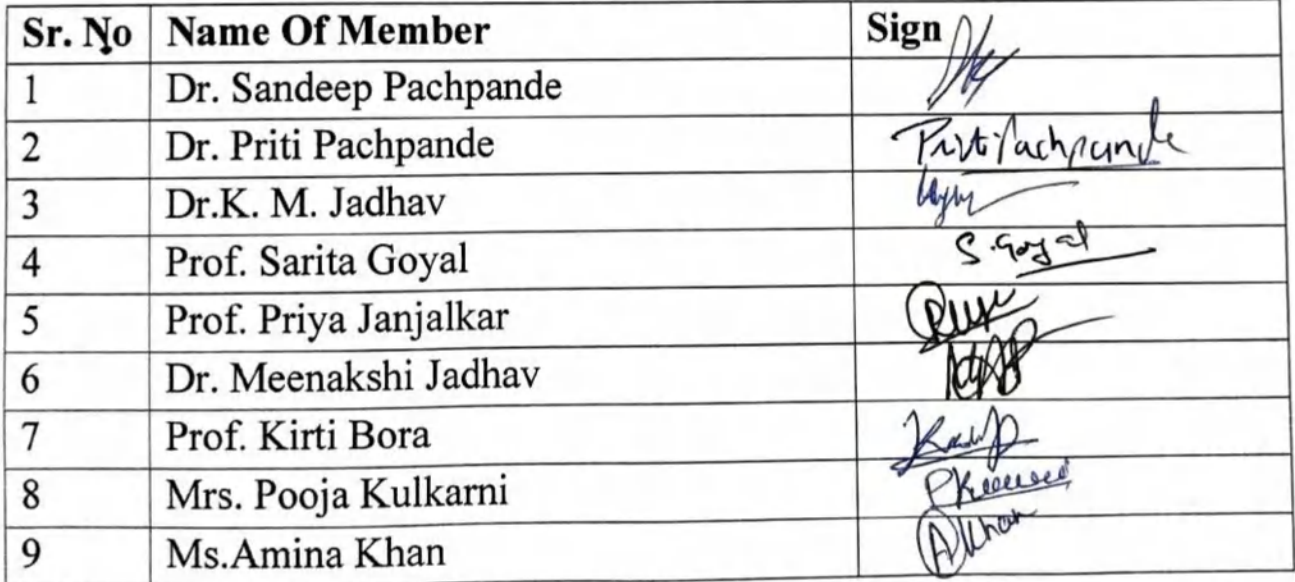 Sr. No Name Of Member Sign
1 Dr. Sandeep Pachpande
2 Dr. Priti Pachpande Priti Pachpande
3 Dr.K. M. Jadhav
4 Prof. Sarita Goyal S. Goyal
5 Prof. Priya Janjalkar
6 Dr. Meenakshi Jadhav
7 Prof. Kirti Bora
8 Mrs. Pooja Kulkarni
9 Ms.Amina Khan A Khan